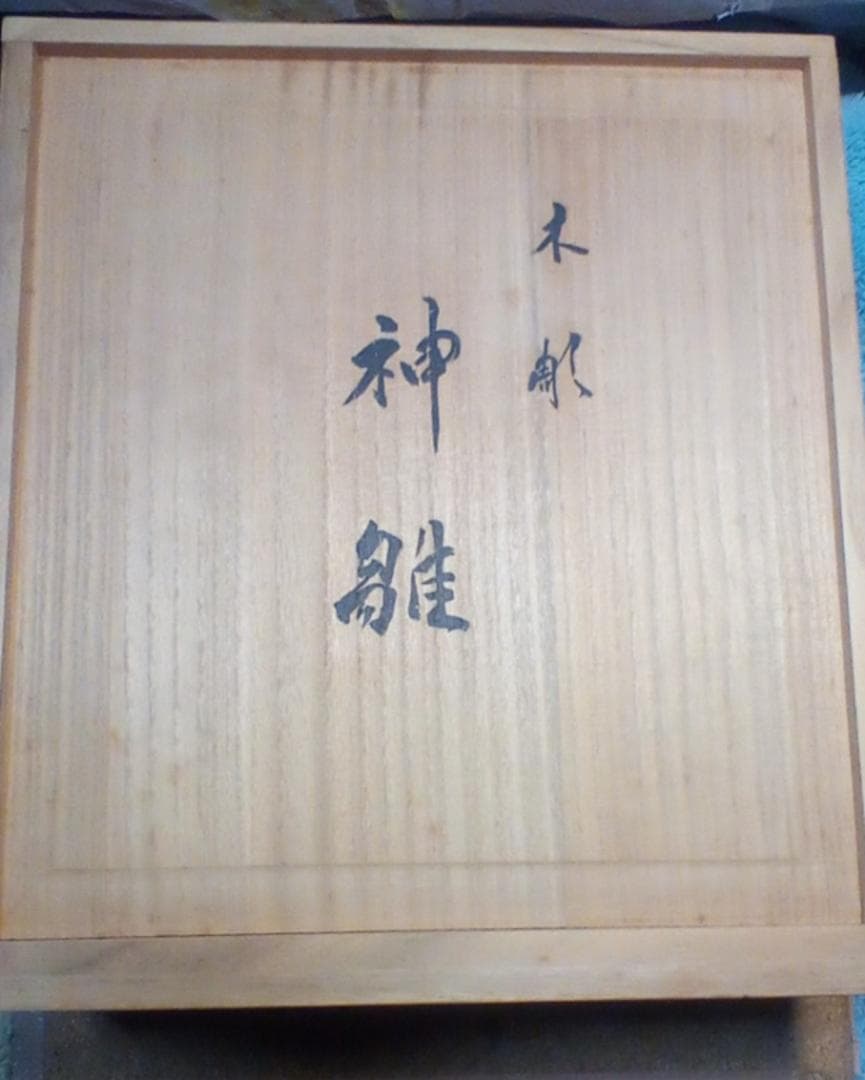 木彫
神雛